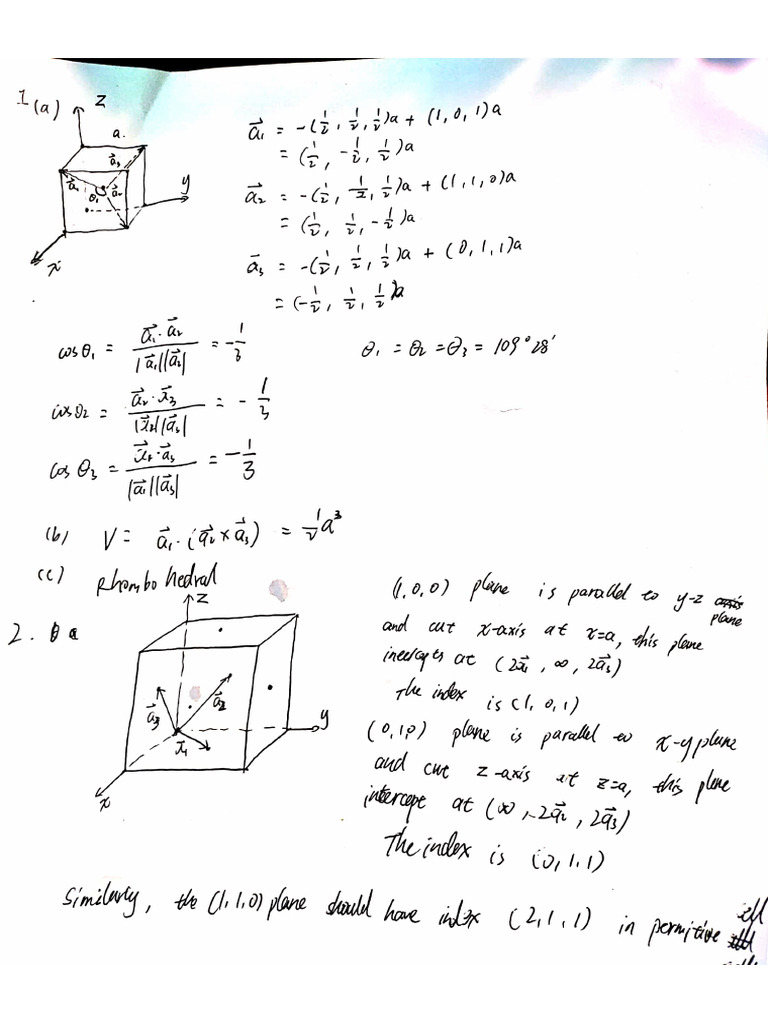 1 (a)
z
a.
a⃗₃
a⃗₁
θ₁
a⃗₂
y
x
a⃗₁ = -(1/2, 1/2, 1/2)a + (1, 0, 1)a
= (1/2, -1/2, 1/2)a
a⃗₂ = -(1/2, 1/2, 1/2)a + (1, 1, 0)a
= (1/2, 1/2, -1/2)a
a⃗₃ = -(1/2, 1/2, 1/2)a + (0, 1, 1)a
= (-1/2, 1/2, 1/2)a
cosθ₁ = a⃗₁·a⃗₂ / |a⃗₁||a⃗₂| = -1/3
θ₁ = θ₂ = θ₃ = 109°28'
cosθ₂ = a⃗₂·a⃗₃ / |a⃗₂||a⃗₃| = -1/3
cosθ₃ = a⃗₁·a⃗₃ / |a⃗₁||a⃗₃| = -1/3
(b) V = a⃗₁·(a⃗₂×a⃗₃) = 1/2 a³
(c) Rhombohedral
2. a
z
a⃗₃
a⃗₂
a⃗₁
y
x
(1,0,0) plane is parallel to y-z plane
and cut x-axis at x=a, this plane
intercepts at (2a⃗₁, ∞, 2a⃗₃)
The index is (1, 0, 1)
(0,1,0) plane is parallel to x-y plane
and cut z-axis at z=a, this plane
intercept at (∞, -2a⃗₂, 2a⃗₃)
The index is (0,1,1)
Similarly, the (1,1,0) plane should have index (2,1,1) in permitive cell